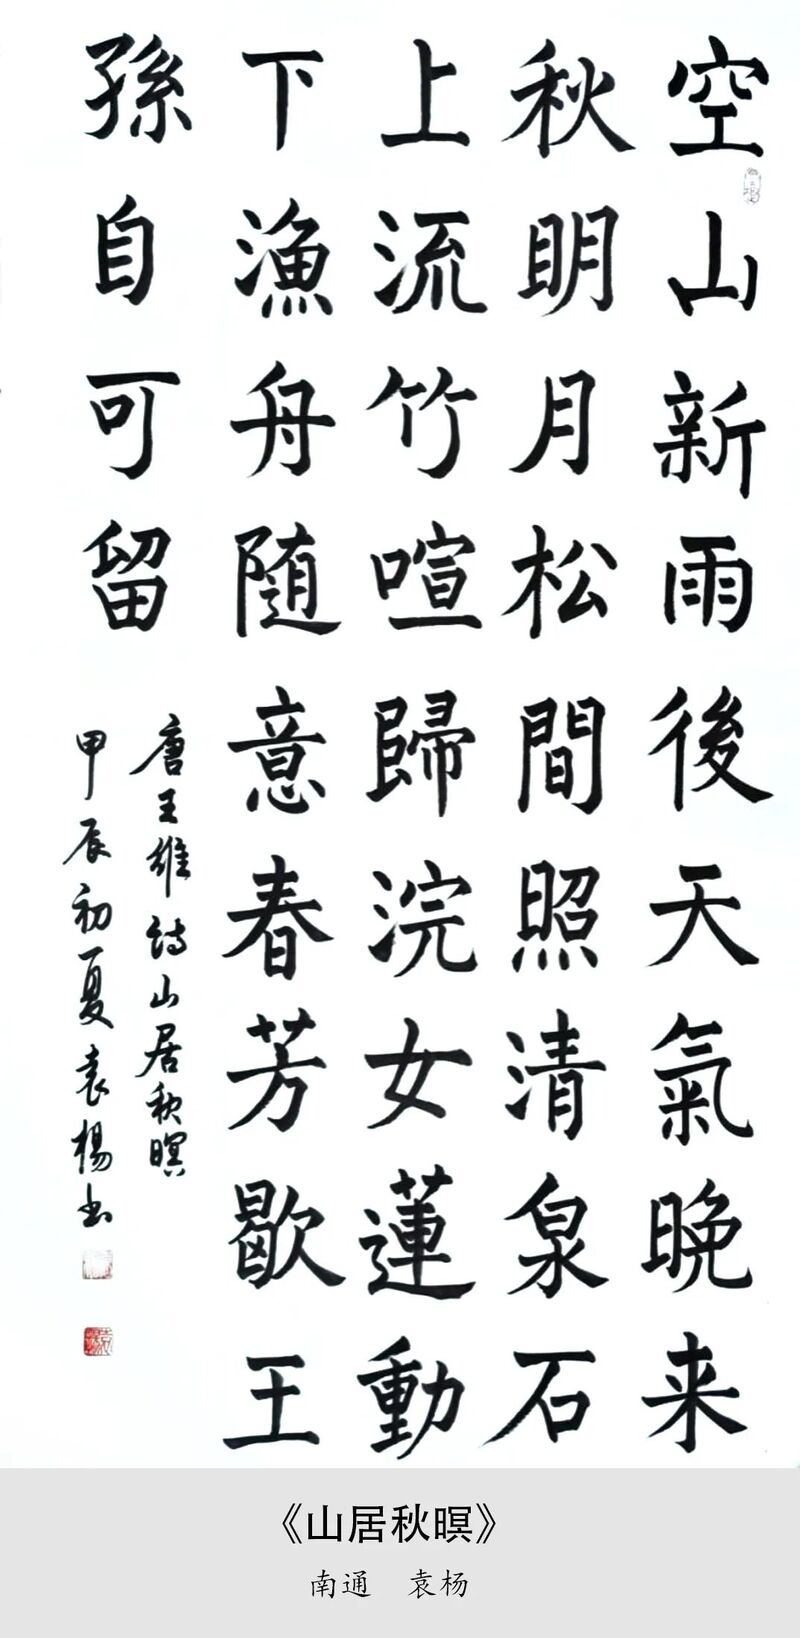 空山新雨後天氣晚来
秋明月松間照清泉石
上流竹喧歸浣女蓮動
下漁舟随意春芳歇王
孫自可留
唐王維詩山居秋暝
甲辰初夏袁楊书
《山居秋暝》
南通 袁杨